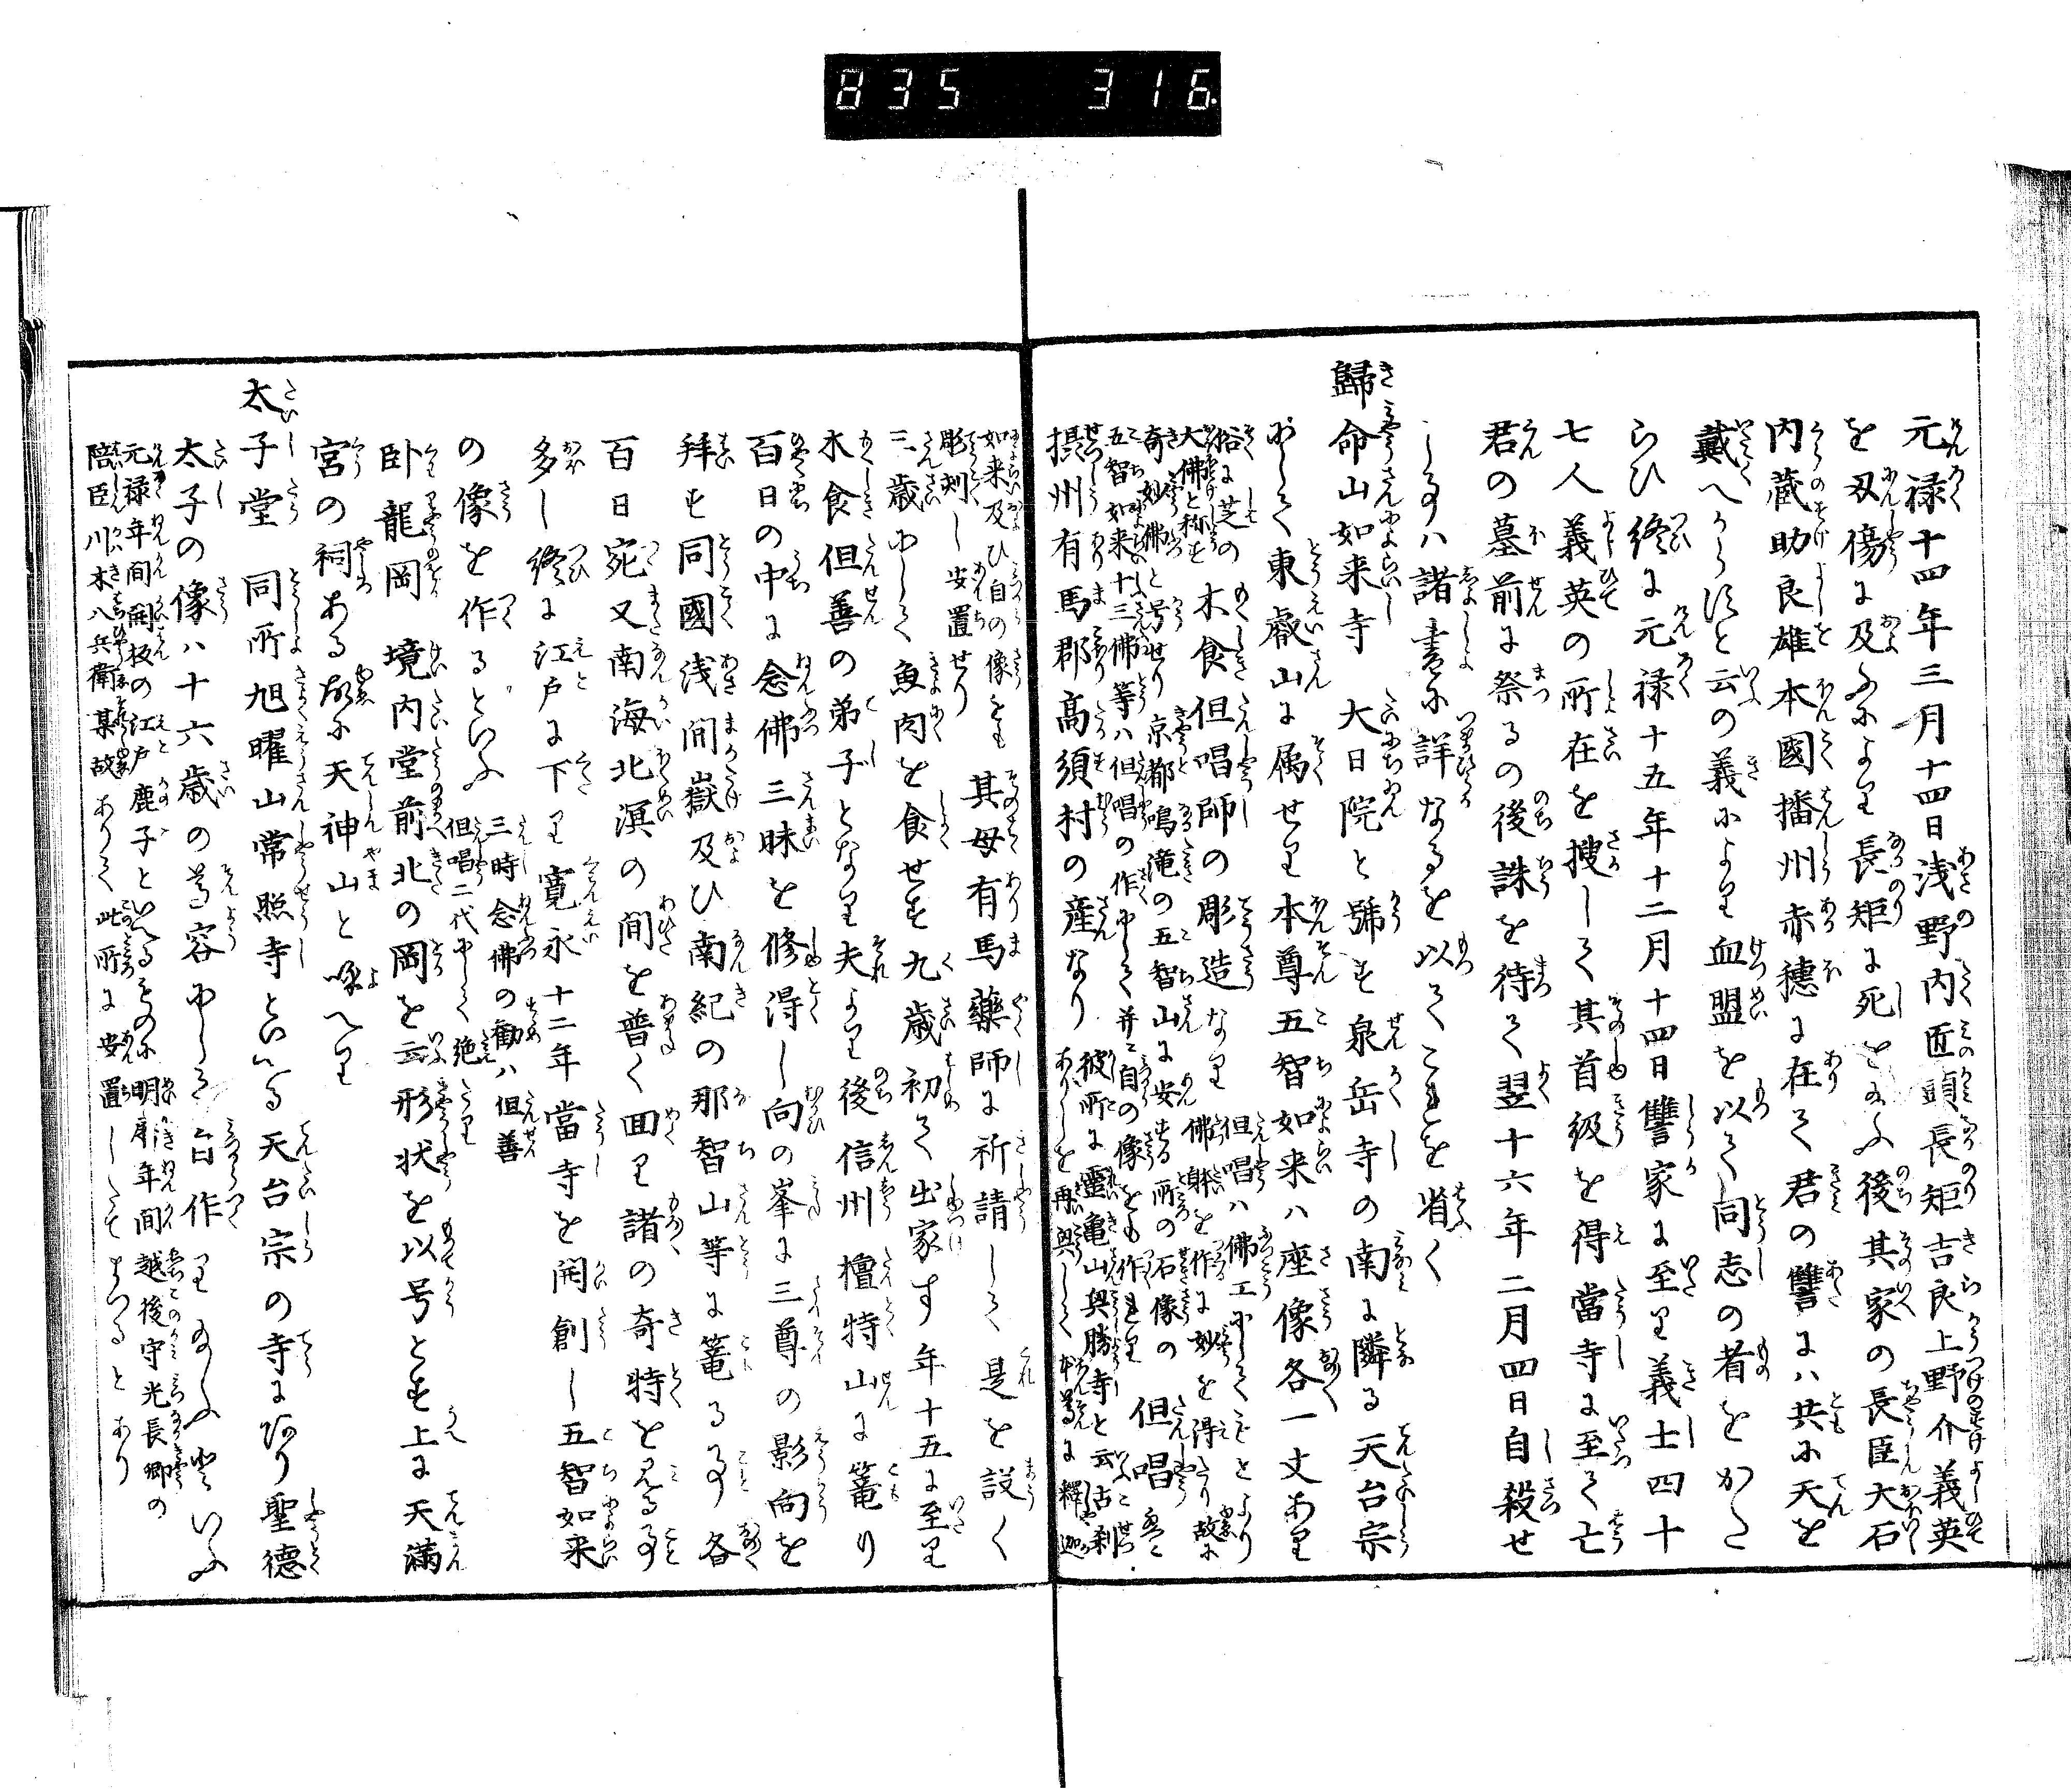 835 316
元禄十四年三月十四日浅野内匠頭長矩吉良上野介義英
を刄傷に及ふにより長矩に死をたまふ後其家の長臣大石
内蔵助良雄本國播州赤穂に在て君の讐には共に天を
戴へからすと云の義により血盟を以て同志の者をかた
らひ終に元禄十五年十二月十四日讐家に至り義士四十
七人義英の所在を捜して其首級を得當寺に至て亡
君の墓前に祭るの後誅を待て翌十六年二月四日自殺せ
し事ハ諸書に詳なるを以てこれを省く
歸命山如来寺 大日院と號す泉岳寺の南に隣る天台宗
にして東叡山に属せり本尊五智如来ハ座像各一丈あり
俗に芝の大佛と称す 木食但唱師の彫造なり 但唱ハ佛工にしてことより佛躰を作に妙を得たり故に
奇妙佛と号せり京都鳴滝の五智山に安する所の石像の
五智如来十三佛等ハ但唱の作にして并に自の像をも作れり 但唱ハ
摂州有馬郡髙須村の産なり 彼所に霊亀山興勝寺と云古刹ありしを再興して本尊に釋迦
如来及ひ自の像をも彫刻し安置せり 其母有馬藥師に祈請して是を設く
三歳にして魚肉を食せす九歳初て出家す年十五に至り
木食但善の弟子となり夫より後信州檀特山に篭り
百日の中に念佛三昧を修得し向の峯に三尊の影向を
拜す同國浅間嶽及ひ南紀の那智山等に篭る事各
百日宛又南海北溟の間を普く囬り諸の奇特をみる事
多し終に江戸に下り寛永十二年當寺を開創し五智如来
の像を作るといふ 三時念佛の勸ハ但善但唱二代にして絶たり
卧龍岡 境内堂前北の岡を云形状を以号とす上に天満
宮の祠ある故に天神山と呼へり
太子堂 同所旭曜山常照寺といへる天台宗の寺にあり聖徳
太子の像ハ十六歳の尊容にして自作りたまふといふ
元禄年間開板の江戸鹿子といへるものに明暦年間越後守光長卿の
陪臣川木八兵衛某故ありて此所に安置したてまつるとあり